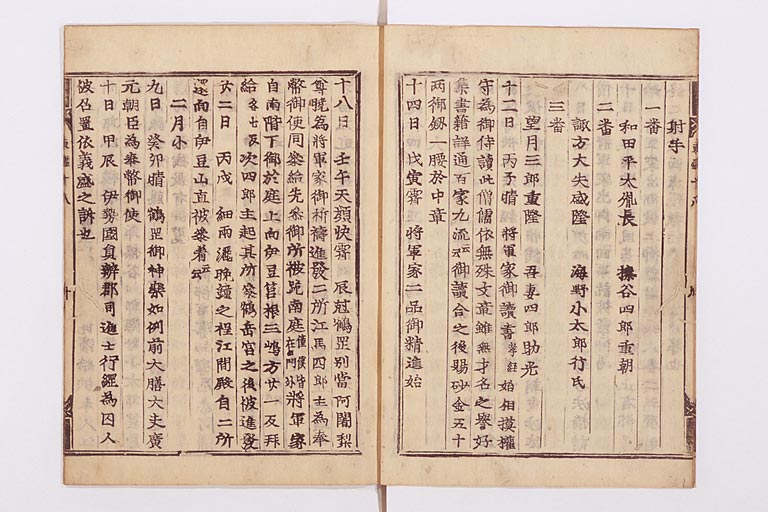 射手
一番
和田平太胤長 榛谷四郎重朝
二番
諏方大夫盛隆 海野小太郎行氏
三番
望月三郎重隆 吾妻四郎助光
十二日 丙子晴 将軍家御讀書孝経始相摸權
守為御侍讀此僧儒依無殊文章雖無才名之譽好
集書籍詳通百家九流云々御讀合之後賜砂金五十
両御劔一腰於中章
十四日 戊寅霽 将軍家二品御精進始
十八日 壬午天顔快霽 辰尅鶴罡別當阿闍梨
尊暁為将軍家御祈禱進發二所江馬四郎主為奉
幣御使同参給先参御所被跪南庭僮僕皆在門外将軍家
自南階下御於庭上向伊豆筥根三嶋方廿一反拜
給各七反次四郎主起其所参鶴岳宮之後被進發
廿二日 丙戌 細雨灑晩鐘之程江間殿自二所
還向自伊豆山直被参着云々
二月小
九日 癸卯晴鶴罡御神樂如例前大膳大夫廣
元朝臣為奉幣御使
十日 甲辰 伊勢國員辨郡司進士行綱為囚人
被召置依義盛之訴也